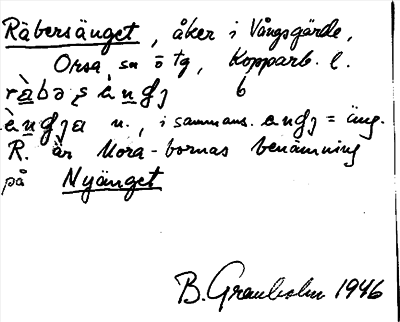 Räbersänget, åker i Vångsgärde,
Orsa sn o tg, Kopparb. l.
ràbəʂàŋgȷ b
àŋgȷa n., i sammans. aŋgȷ = äng.
R. är Mora-bornas benämning
på Nyänget
B. Granholm 1946